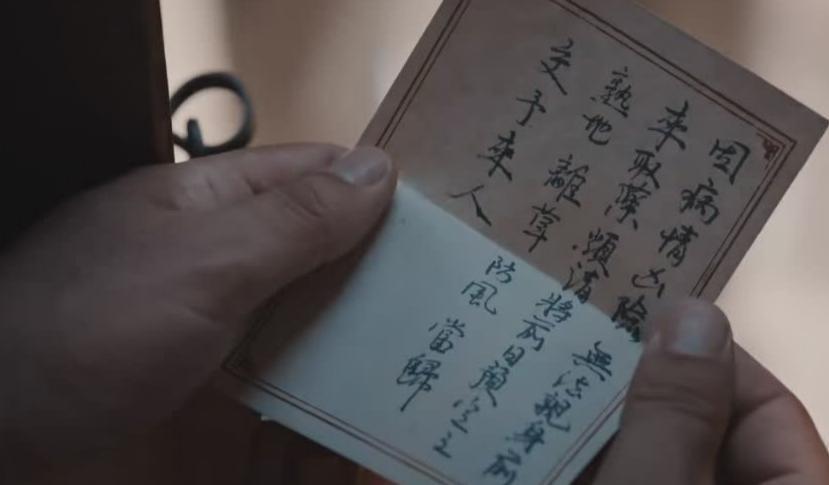 因病情凶險 無法親身前
來取藥 煩請將前日預定之
熟地 離草 防風 當歸
交予來人